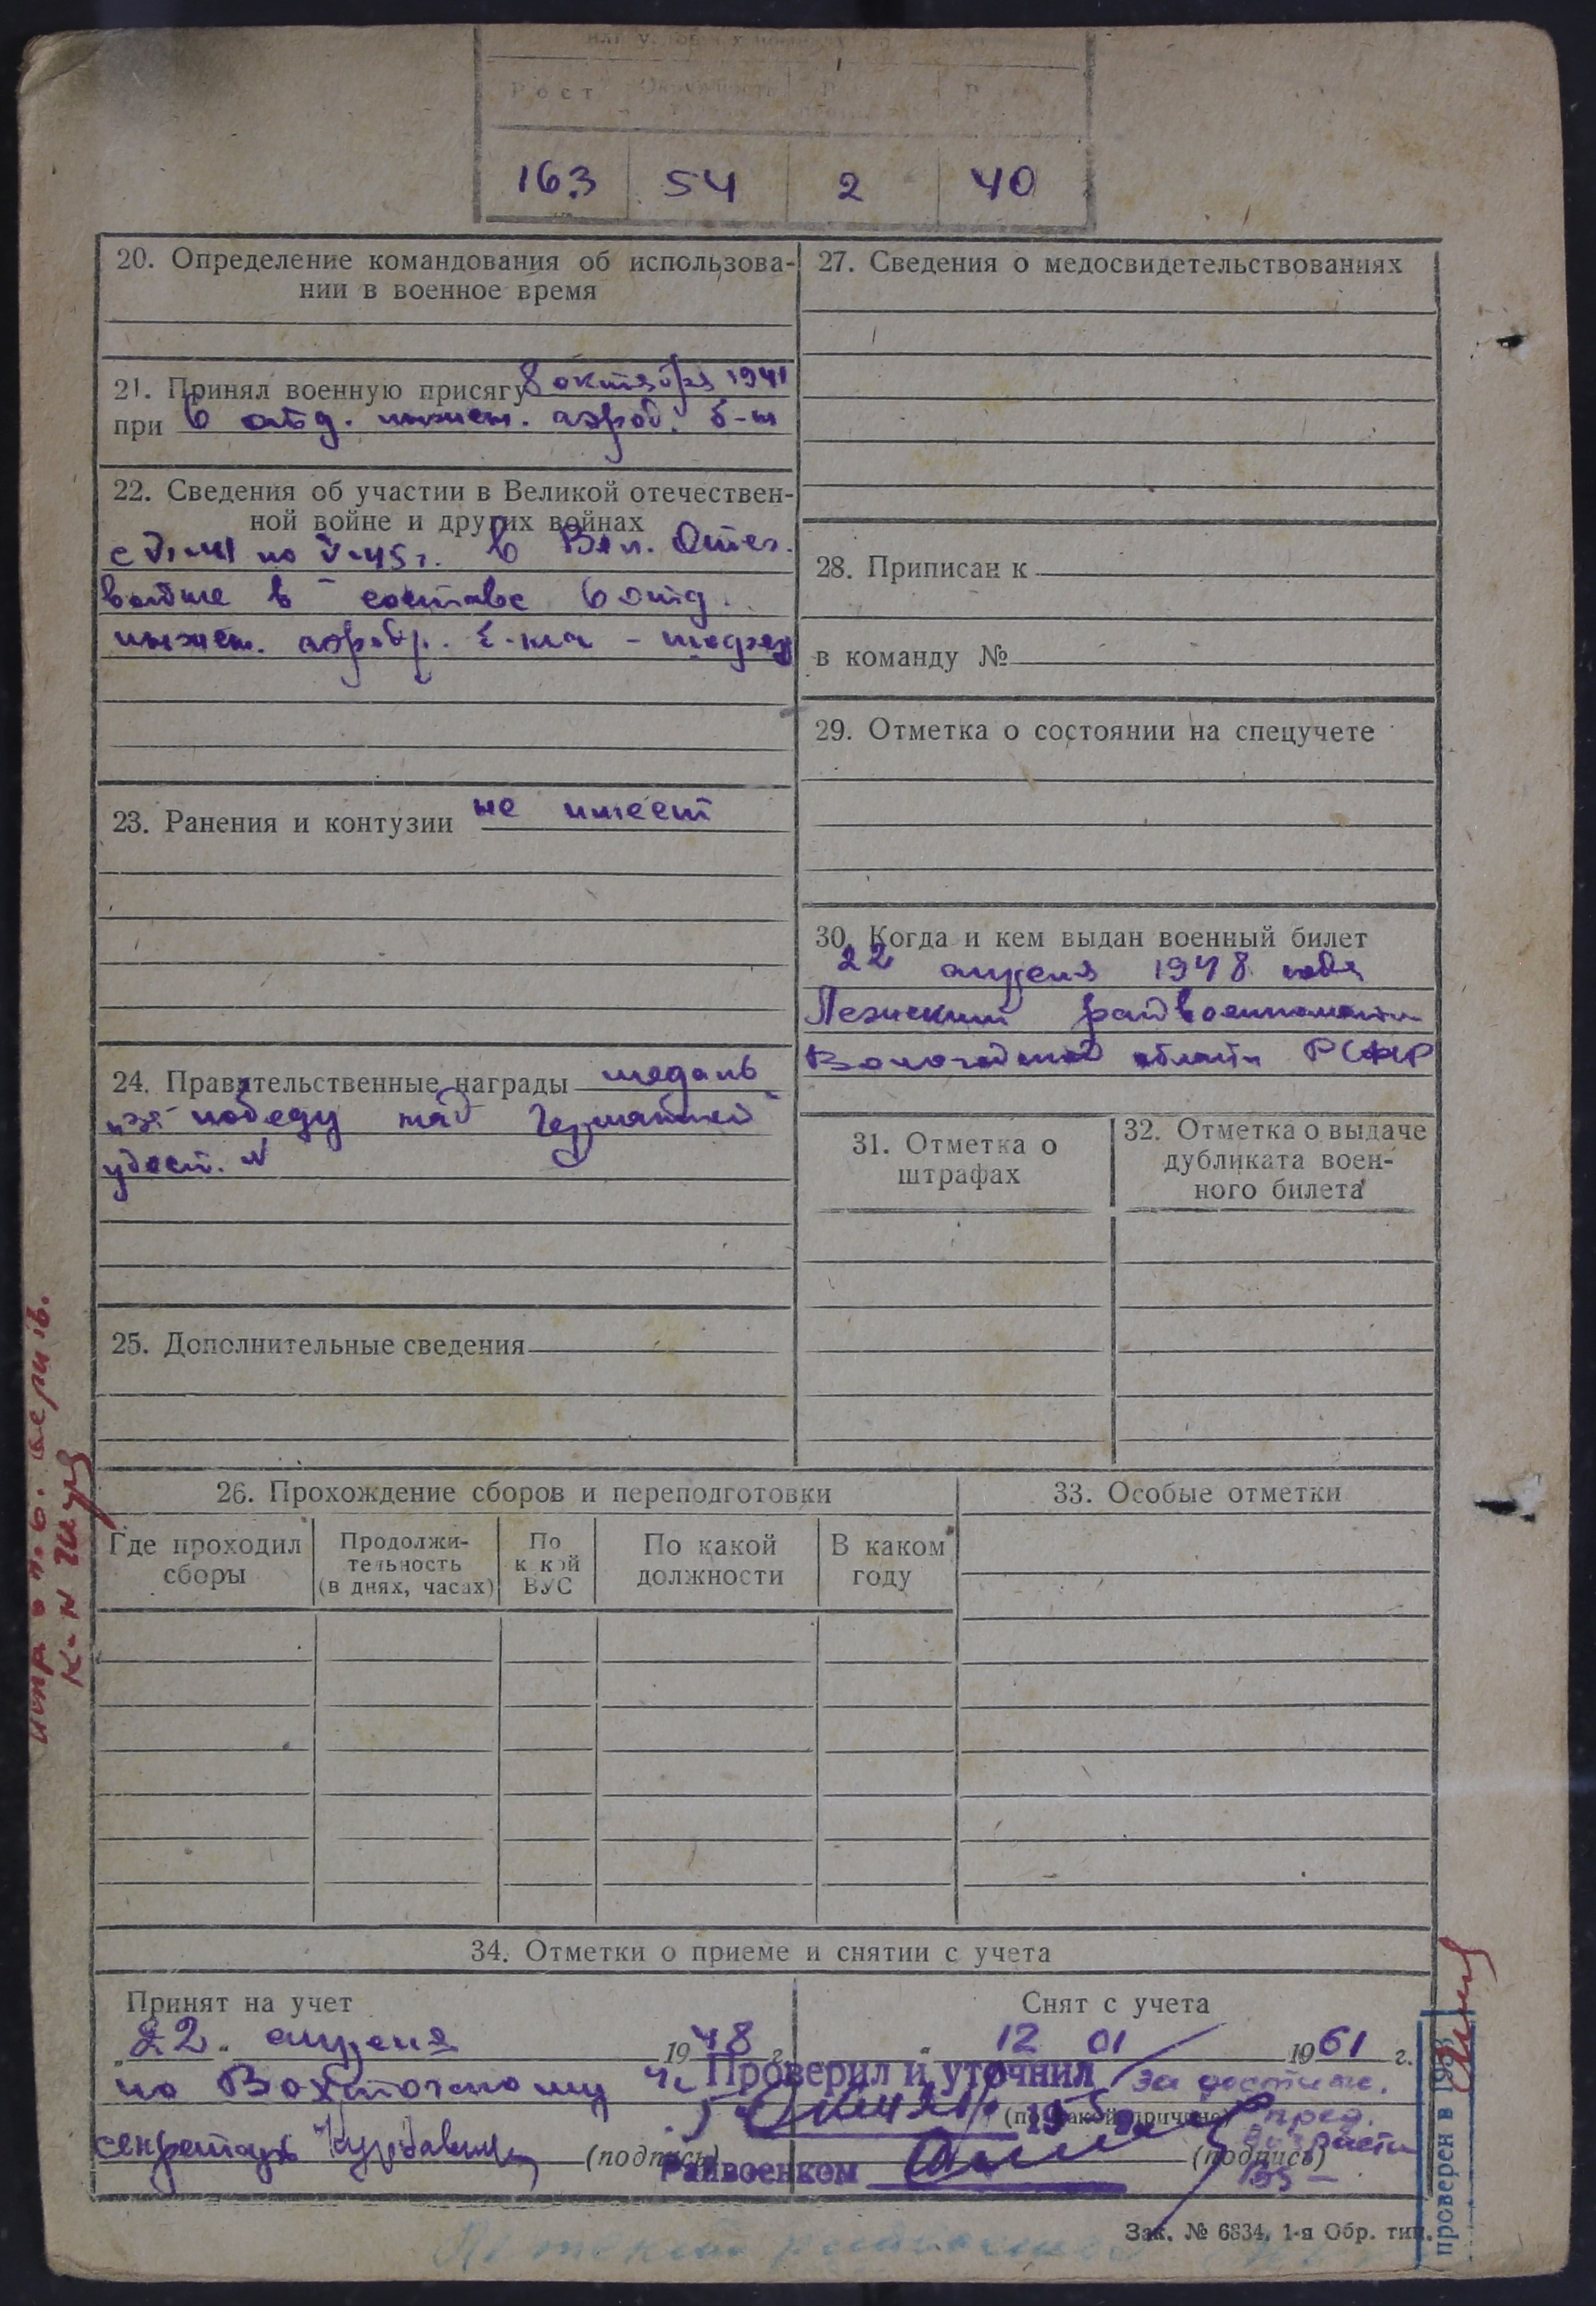 Рост
163 54 2 40
20. Определение командования об использова-
нии в военное время
21. Принял военную присягу 8 октября 1941
при 6 отд. инжен. аэрод. б-н
22. Сведения об участии в Великой отечествен-
ной войне и других войнах
с VI-41 по V-45 г. в Вел. Отеч.
войне в составе 6 отд.
инжен. аэродр. б-на -
23. Ранения и контузии не имеет
24. Правительственные награды медаль
"За победу над Германией"
удост. №
25. Дополнительные сведения
26. Прохождение сборов и переподготовки
Где проходил
сборы
Продолжи-
тельность
(в днях, часах)
По
какой
ВУС
По какой
должности
В каком
году
27. Сведения о медосвидетельствованиях
28. Приписан к
в команду №
29. Отметка о состоянии на спецучете
30. Когда и кем выдан военный билет
22 апреля 1948 года
Лежский райвоенкоматом
Вологодской области РСФСР
31. Отметка о
штрафах
32. Отметка о выдаче
дубликата воен-
ного билета
33. Особые отметки
34. Отметки о приеме и снятии с учета
Принят на учет
"22" апреля 1948 г.
по Вохтожскому
секретарь
(подпись)
Снят с учета
" 12 01 1961 г.
за достиж.
пред.
возраста
55 —
(по какой причине)
(подпись)
Проверил и уточнил
195
Райвоенком
Зак. № 6834, 1-я Обр. тип.
проверен в 195